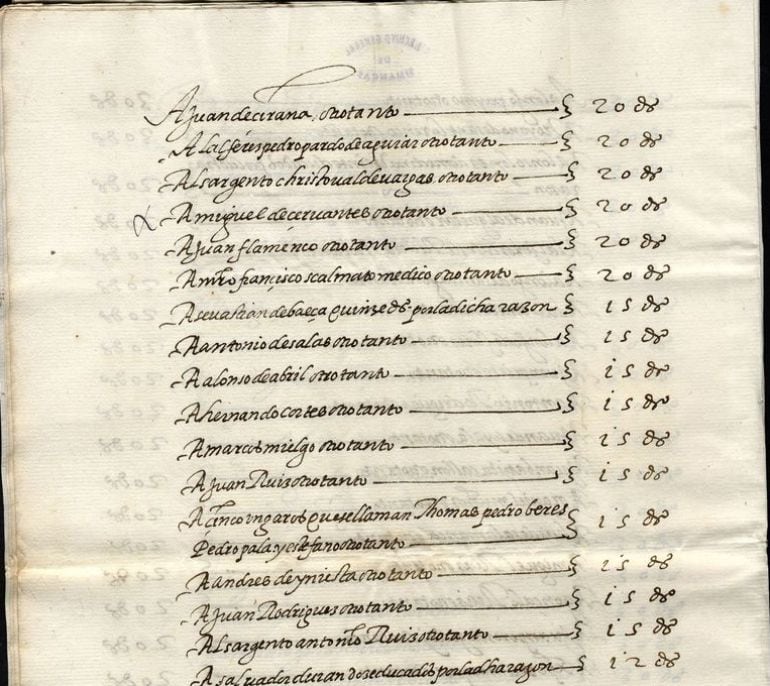 ARCHIVO GENERAL
DE
SIMANCAS
A Juan de cirana otro tanto } 20 ds
Al alferes pedro pardo de aguiar otro tanto } 20 ds
Al sargento christoval de vargas otro tanto } 20 ds
A miguel de cervantes otro tanto } 20 ds
A Juan flamenco otro tanto } 20 ds
A mro francisco scalmato medico otro tanto } 20 ds
A sevastian de baeça quinze ds por la dicha razon } 15 ds
A antonio de salas otro tanto } 15 ds
A alonso de abril otro tanto } 15 ds
A hernando cortes otro tanto } 15 ds
A marcos mielgo otro tanto } 15 ds
A Juan Ruis otro tanto } 15 ds
A cinco ungaros que se llaman Thomas pedro beres } 15 ds
Pedro pala y estefano otro tanto
A andres de yniesta otro tanto } 15 ds
A Juan Rodrigues otro tanto } 15 ds
Al sargento antonio Ruis otro tanto } 15 ds
A salvador duran doze ducados por la dha razon } 12 ds